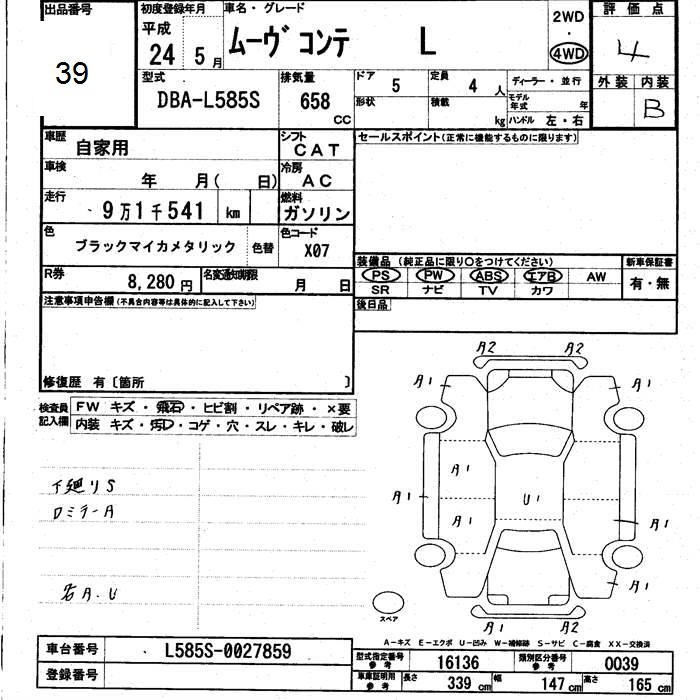 出品番号
39
初度登録年月
平成
24 5月
車名・グレード
ムーヴ コンテ L
2WD
・
4WD
評価点
4
外装 内装
B
型式
DBA-L585S
排気量
658
CC
ドア 5
定員 4 人
ディーラー・並行
形状
積載 kg
モデル年式 年
ハンドル 左・右
車歴
自家用
シフト
CAT
セールスポイント(正常に機能するものに限ります)
車検
年 月( 日)
冷房
AC
走行
9万1千541 km
燃料
ガソリン
色
ブラックマイカメタリック 色替
色コード
X07
装備品 (純正品に限り〇をつけてください)
新車保証書
PS PW ABS エアB AW
有・無
SR ナビ TV カワ
R券
8,280 円
名変通知期限
月 日
後日品
注意事項申告欄(不具合内容等は具体的に記入して下さい)
修復歴 有〔箇所 〕
検査員記入欄
FW キズ・飛石・ヒビ割・リペア跡・×要
内装 キズ・汚レ・コゲ・穴・スレ・キレ・破レ
下廻りS
ロミラーA
名A.U
A2 A2
A1 A1
A1
A1 U1
A1 A1
A1 A1
A1 A1
スペア
A-キズ E-エクボ U-凹み W-補修跡 S-サビ C-腐食 XX-交換済
車台番号
L585S-0027859
登録番号
型式指定番号 参考
16136
類別区分番号 参考
0039
車庫証明用 参考
長さ 339 cm
幅 147 cm
高さ 165 cm